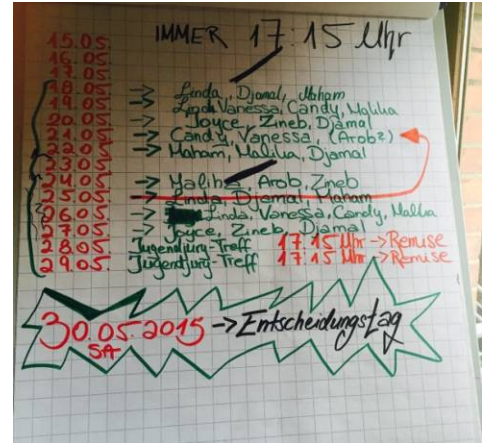 IMMER 17:15 Uhr
15.05.
16.05.
17.05.
18.05. -> Linda, Djamal, Maham
19.05. -> Linda Vanessa, Candy, Malika
20.05. -> Joyce, Zineb, Djamal
21.05. -> Candy, Vanessa, (Arob?)
22.05. -> Maham, Malika, Djamal
23.05.
24.05. -> Maliha, Arob, Zineb
25.05. -> Linda, Djamal, Maham
06.05. -> Linda, Vanessa, Candy, Malika
27.05. -> Joyce, Zineb, Djamal
28.05. Jugendjury-Treff 17:15 Uhr -> Remise
29.05. Jugendjury-Treff 17:15 Uhr -> Remise
30.05.2015 -> Entscheidungstag
SA